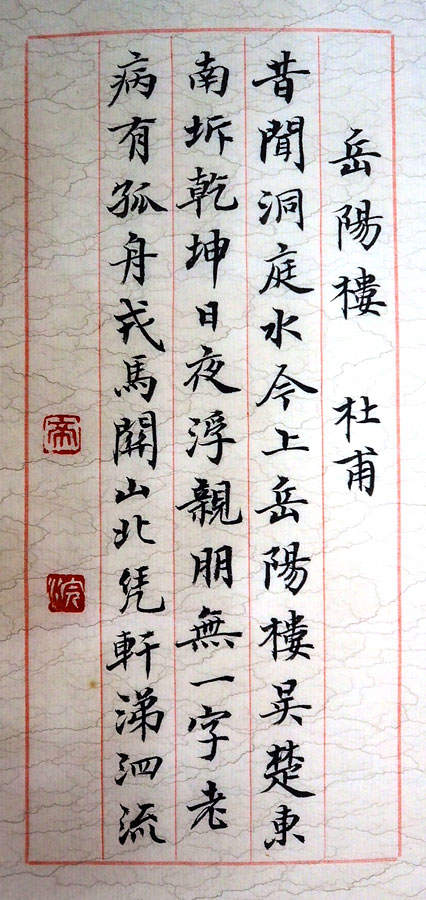 岳陽樓 杜甫
昔聞洞庭水今上岳陽樓吴楚東
南坼乾坤日夜浮親朋無一字老
病有孤舟戎馬關山北凭軒涕泗流